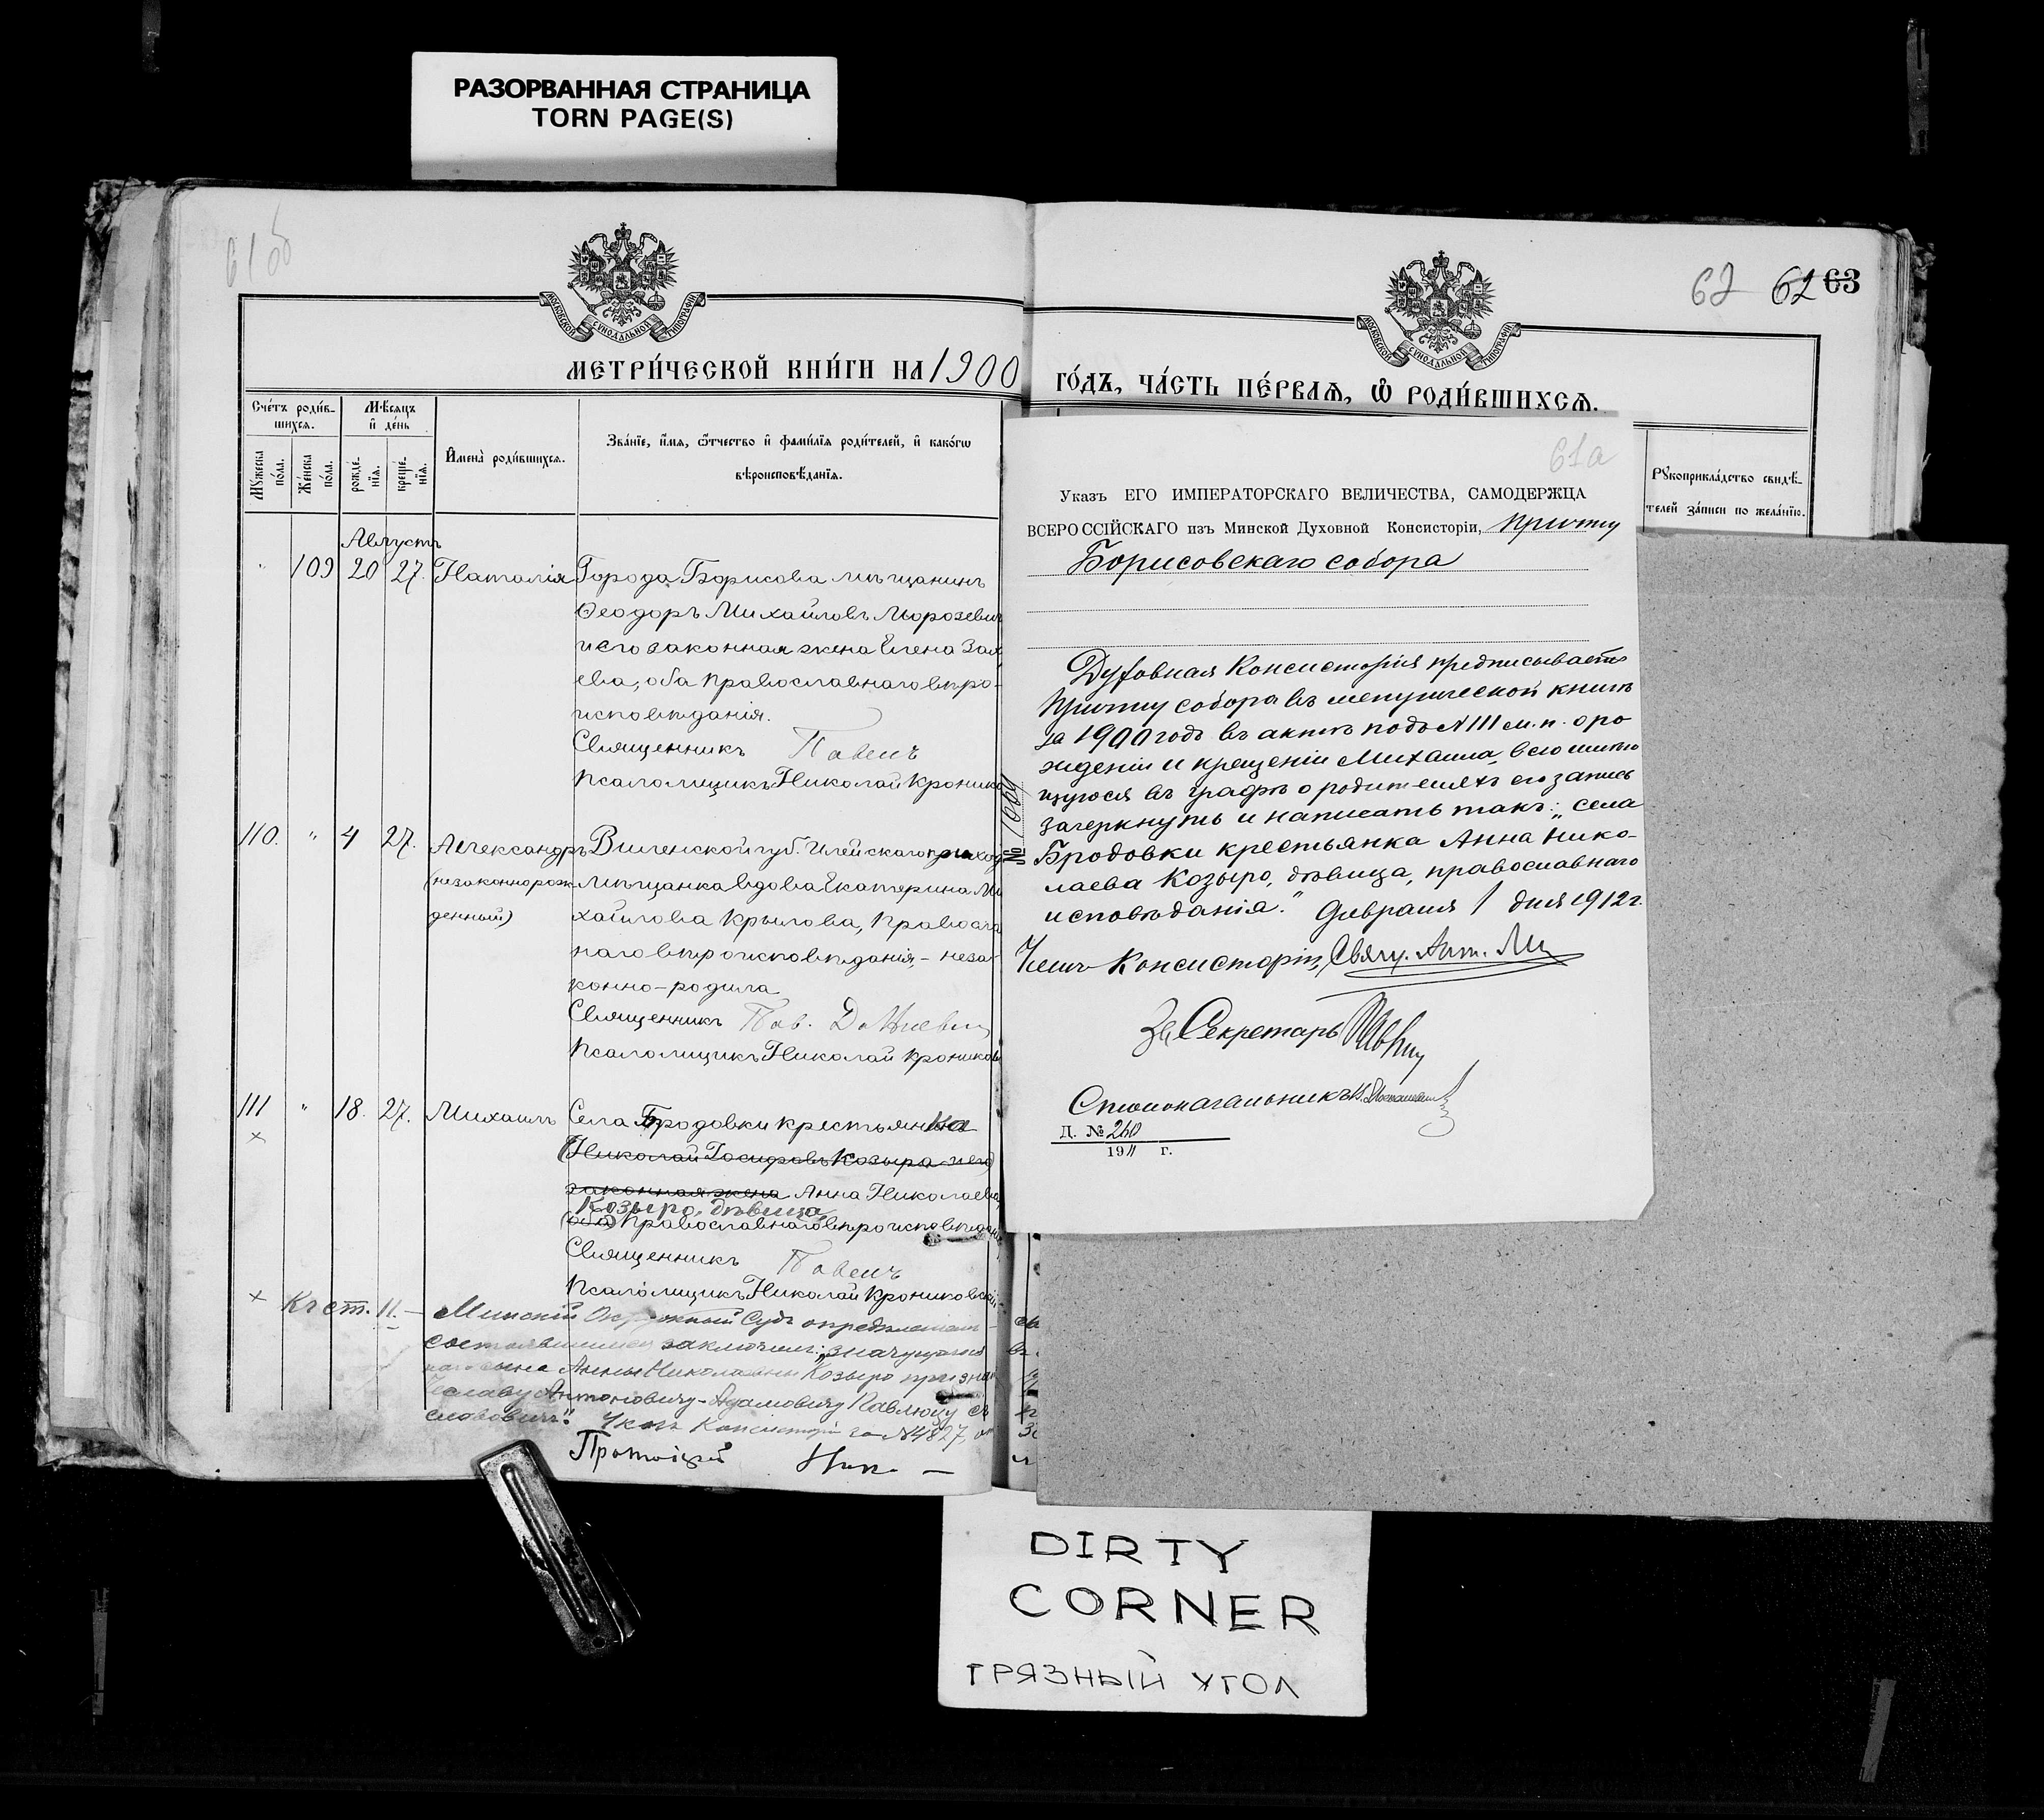 РАЗОРВАННАЯ СТРАНИЦА
TORN PAGE(S)
61об
МОСКОВСКОЙ СѴНОДАЛЬНОЙ ТИПОГРАФІИ
МЕТРИ́ЧЕСКОЙ КНИ́ГИ НА 1900
Сче́тъ роди́в-
шихсѧ.
Мꙋ́жеска по́ла.
Же́нска по́ла.
Мѣ́сѧцъ и҆ де́нь
рожде́-
нїѧ.
креще́-
нїѧ.
И҆мена̀ роди́вшихсѧ.
Зва́нїе, и҆́мѧ, ѻ҆́тчество и҆ фами́лїѧ роди́телей, и҆ како́гѡ
вѣроисповѣ́данїѧ.
Августъ
" 109 20 27. Наталія Города Борисова мѣщанинъ
Ѳеодоръ Михайловъ Морозевич
и его законная жена Елена
ева, оба православнаго вѣро-
исповѣданія.
Священникъ Павелъ
Псаломщикъ Николай Кроник
110. " 4 27. Александръ Виленской губ. Илейскаго приход
(незаконнорож- мѣщанка вдова Екатерина Ми
денный) хайлова Крылова, Правосла
наго вѣроисповѣданія, - неза-
конно-родила
Священникъ Пав.
Псаломщикъ Николай Крониковс
111 " 18. 27. Михаилъ Села Бродовки крестьянка
× (Николай Іосифовъ Козыра и его)
законная жена Анна Николаева
Козыро, дѣвица,
(оба) Православнаго вѣроисповѣдан
Священникъ Павелъ
Псаломщикъ Николай Крониковскій
× Къ ст. 11. — Минскій Окружный Судъ опредѣленіемъ
состоявшимся заключилъ: „значущагося
сына Анны Николаевны Козыро призна
Антоновичу-Адамовичу Павлюцу съ
Указъ Консисторіи за №4827,
Протоіерей Ник. —
62 62 63
МОСКОВСКОЙ СѴНОДАЛЬНОЙ ТИПОГРАФІИ
ГО́ДЪ, ЧА́СТЬ ПЕ́РВАѦ, Ѡ҆ РОДИ́ВШИХСѦ.
Рꙋкоприкла́дство свидѣ́-
телей за́писи по жела́нїю.
61а
Указъ ЕГО ИМПЕРАТОРСКАГО ВЕЛИЧЕСТВА, САМОДЕРЖЦА
ВСЕРОССІЙСКАГО изъ Минской Духовной Консисторіи, Причту
Борисовскаго собора
Духовная Консисторія предписываетъ
Причту собора въ метрической книгѣ
за 1900 годъ въ актѣ подъ №111 м.п. о ро
жденіи и крещеніи Михаила,
щуюся въ графѣ о родителяхъ его запись
зачеркнуть и написать такъ: „села
Бродовки крестьянка Анна Нико-
лаева Козыро, дѣвица, православнаго
исповѣданія." Февраля 1 дня 1912 г.
Членъ Консисторіи, Свящ. Ант.
За Секретарь
Столоначальникъ
Д. № 260
1911 г.
DIRTY
CORNER
ГРЯЗНЫЙ УГОЛ